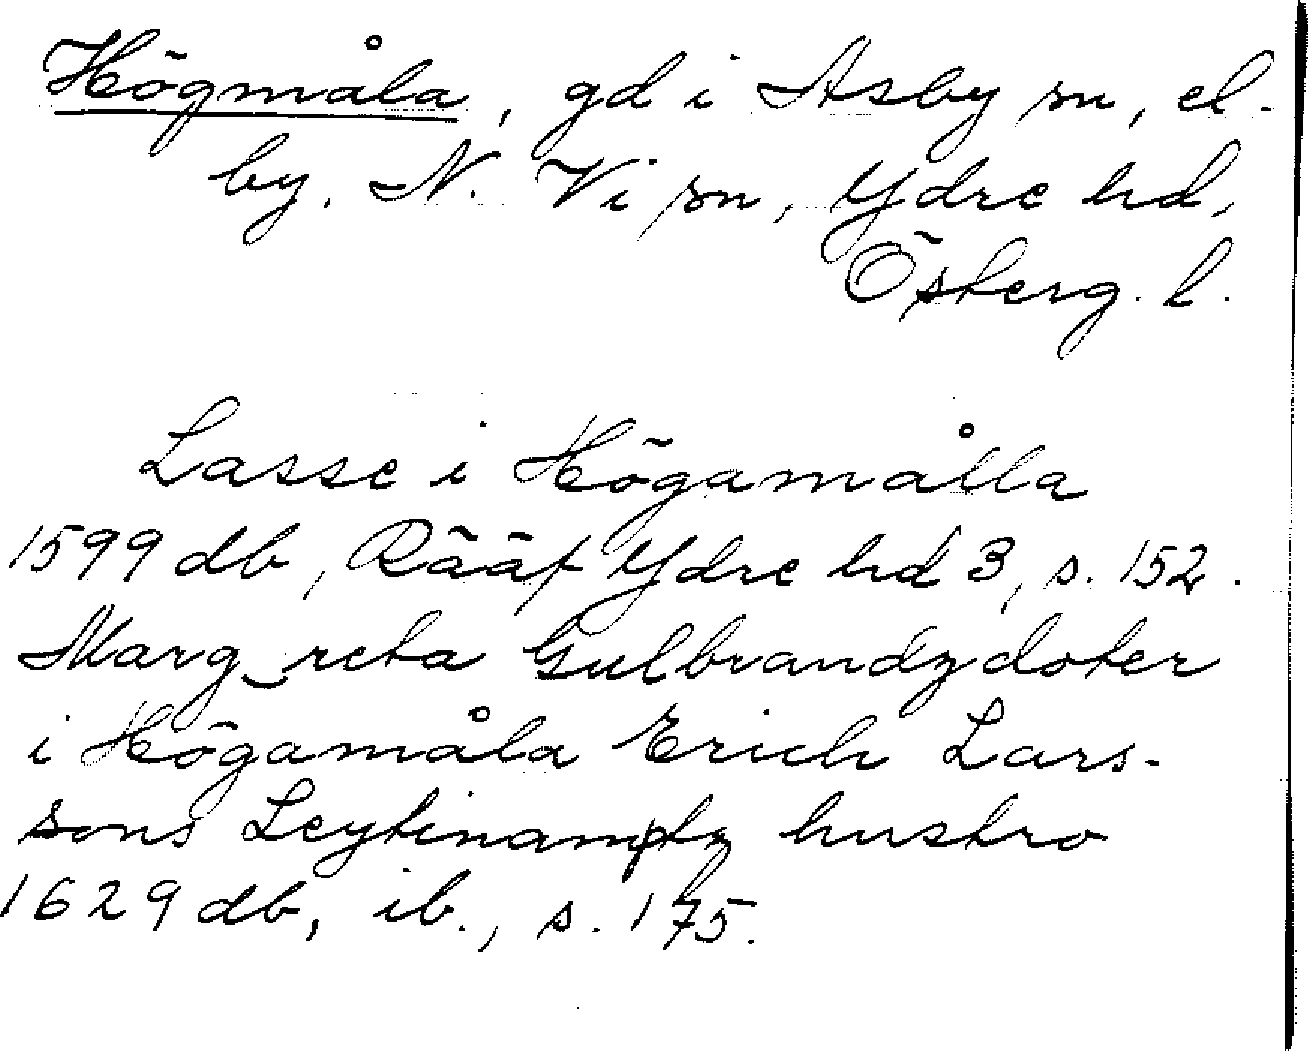 Högmåla, gd i Asby sn, el.
by. N. Vi sn, Ydre hd,
Österg. l.
Lasse i Högamålla
1599 db, Rääf Ydre hd 3, s. 152.
Marg_reta Gulbrandzdoter
i Högamåla Erich Lars-
sons Leytinamptz hustro
1629 db, ib., s. 175.